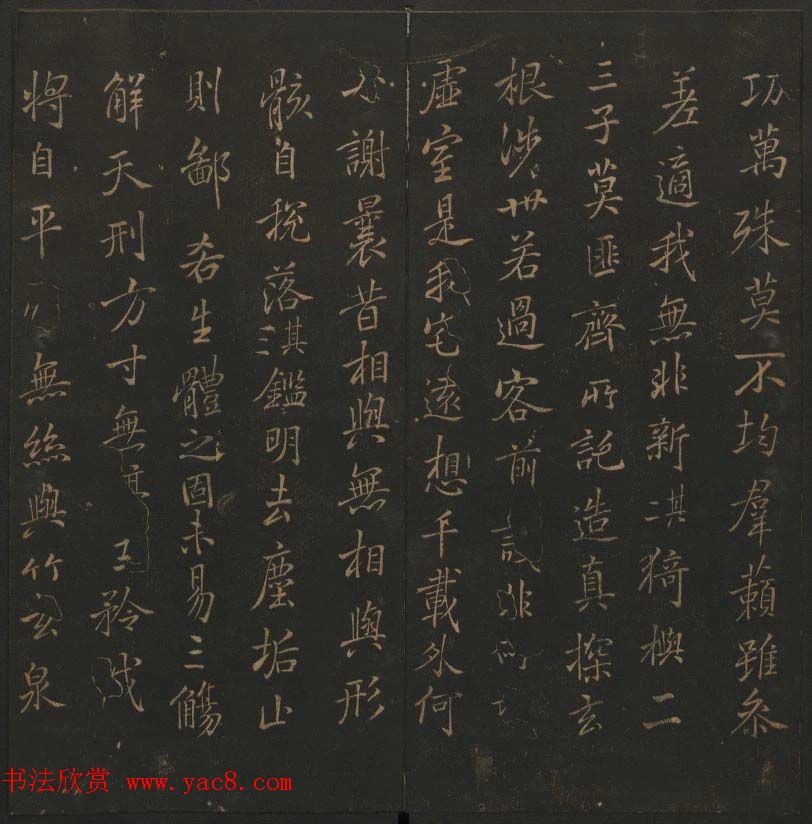 功萬殊莫不均羣藾雖叅
差適我無非新淇猗與二
三子莫匪齊所託造真探玄
根涉世若過客前識非所
虛室是我宅遠想千載外何
必謝曩昔相與無相與形
骸自脫落淇鑑明去塵垢止
則鄙吝生體之固未易三觴
解天刑方寸無 王矜伐
將自平 無絲與竹玄泉
书法欣赏 www.yac8.com